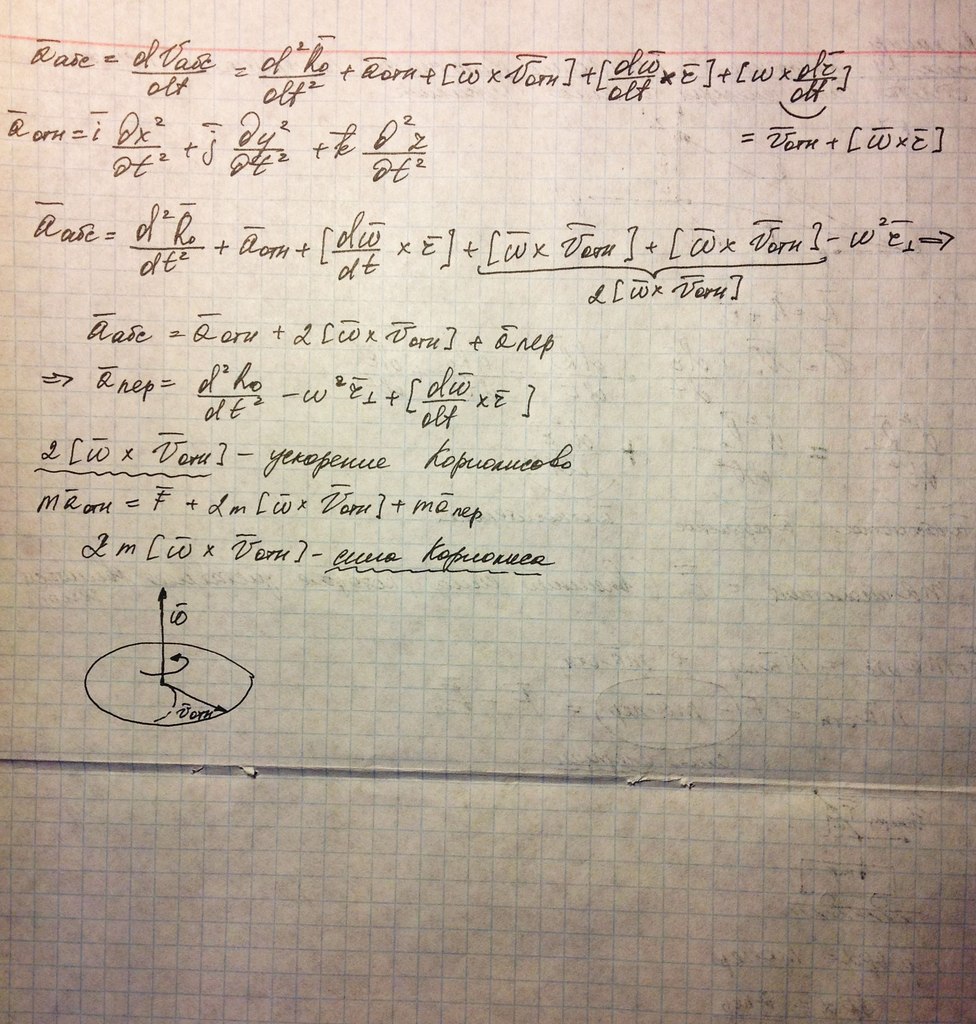 ā абс = dV̄абс/dt = d²R̄₀/dt² + ā отн + [ω̄ × V̄отн] + [dω̄/dt × r̄] + [ω × dr̄/dt]
= V̄отн + [ω̄ × r̄]
ā отн = ī ∂x²/∂t² + j̄ ∂y²/∂t² + k̄ ∂²z/∂t²
ā абс = d²R̄₀/dt² + ā отн + [dω̄/dt × r̄] + [ω̄ × V̄отн] + [ω̄ × V̄отн] - ω² r̄⊥ ⇒
2[ω̄ × V̄отн]
ā абс = ā отн + 2[ω̄ × V̄отн] + ā пер
⇒ ā пер = d²R₀/dt² - ω² r̄⊥ + [dω̄/dt × r̄]
2[ω̄ × V̄отн] - ускорение Кориолисово
mā отн = F̄ + 2m[ω̄ × V̄отн] + mā пер
2m[ω̄ × V̄отн] - сила Кориолиса
ω̄
V̄отн